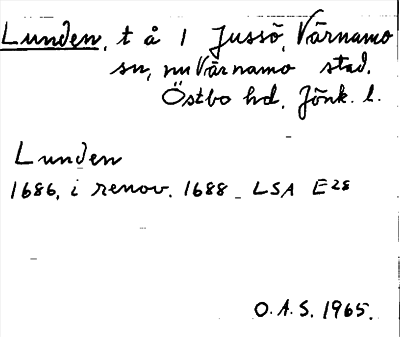 Lunden, t å 1 Jussö, Värnamo
sn, nu Värnamo stad.
Östbo hd, Jönk. l.
Lunden
1686, i renov. 1688 - LSA E28
O.A.S. 1965.